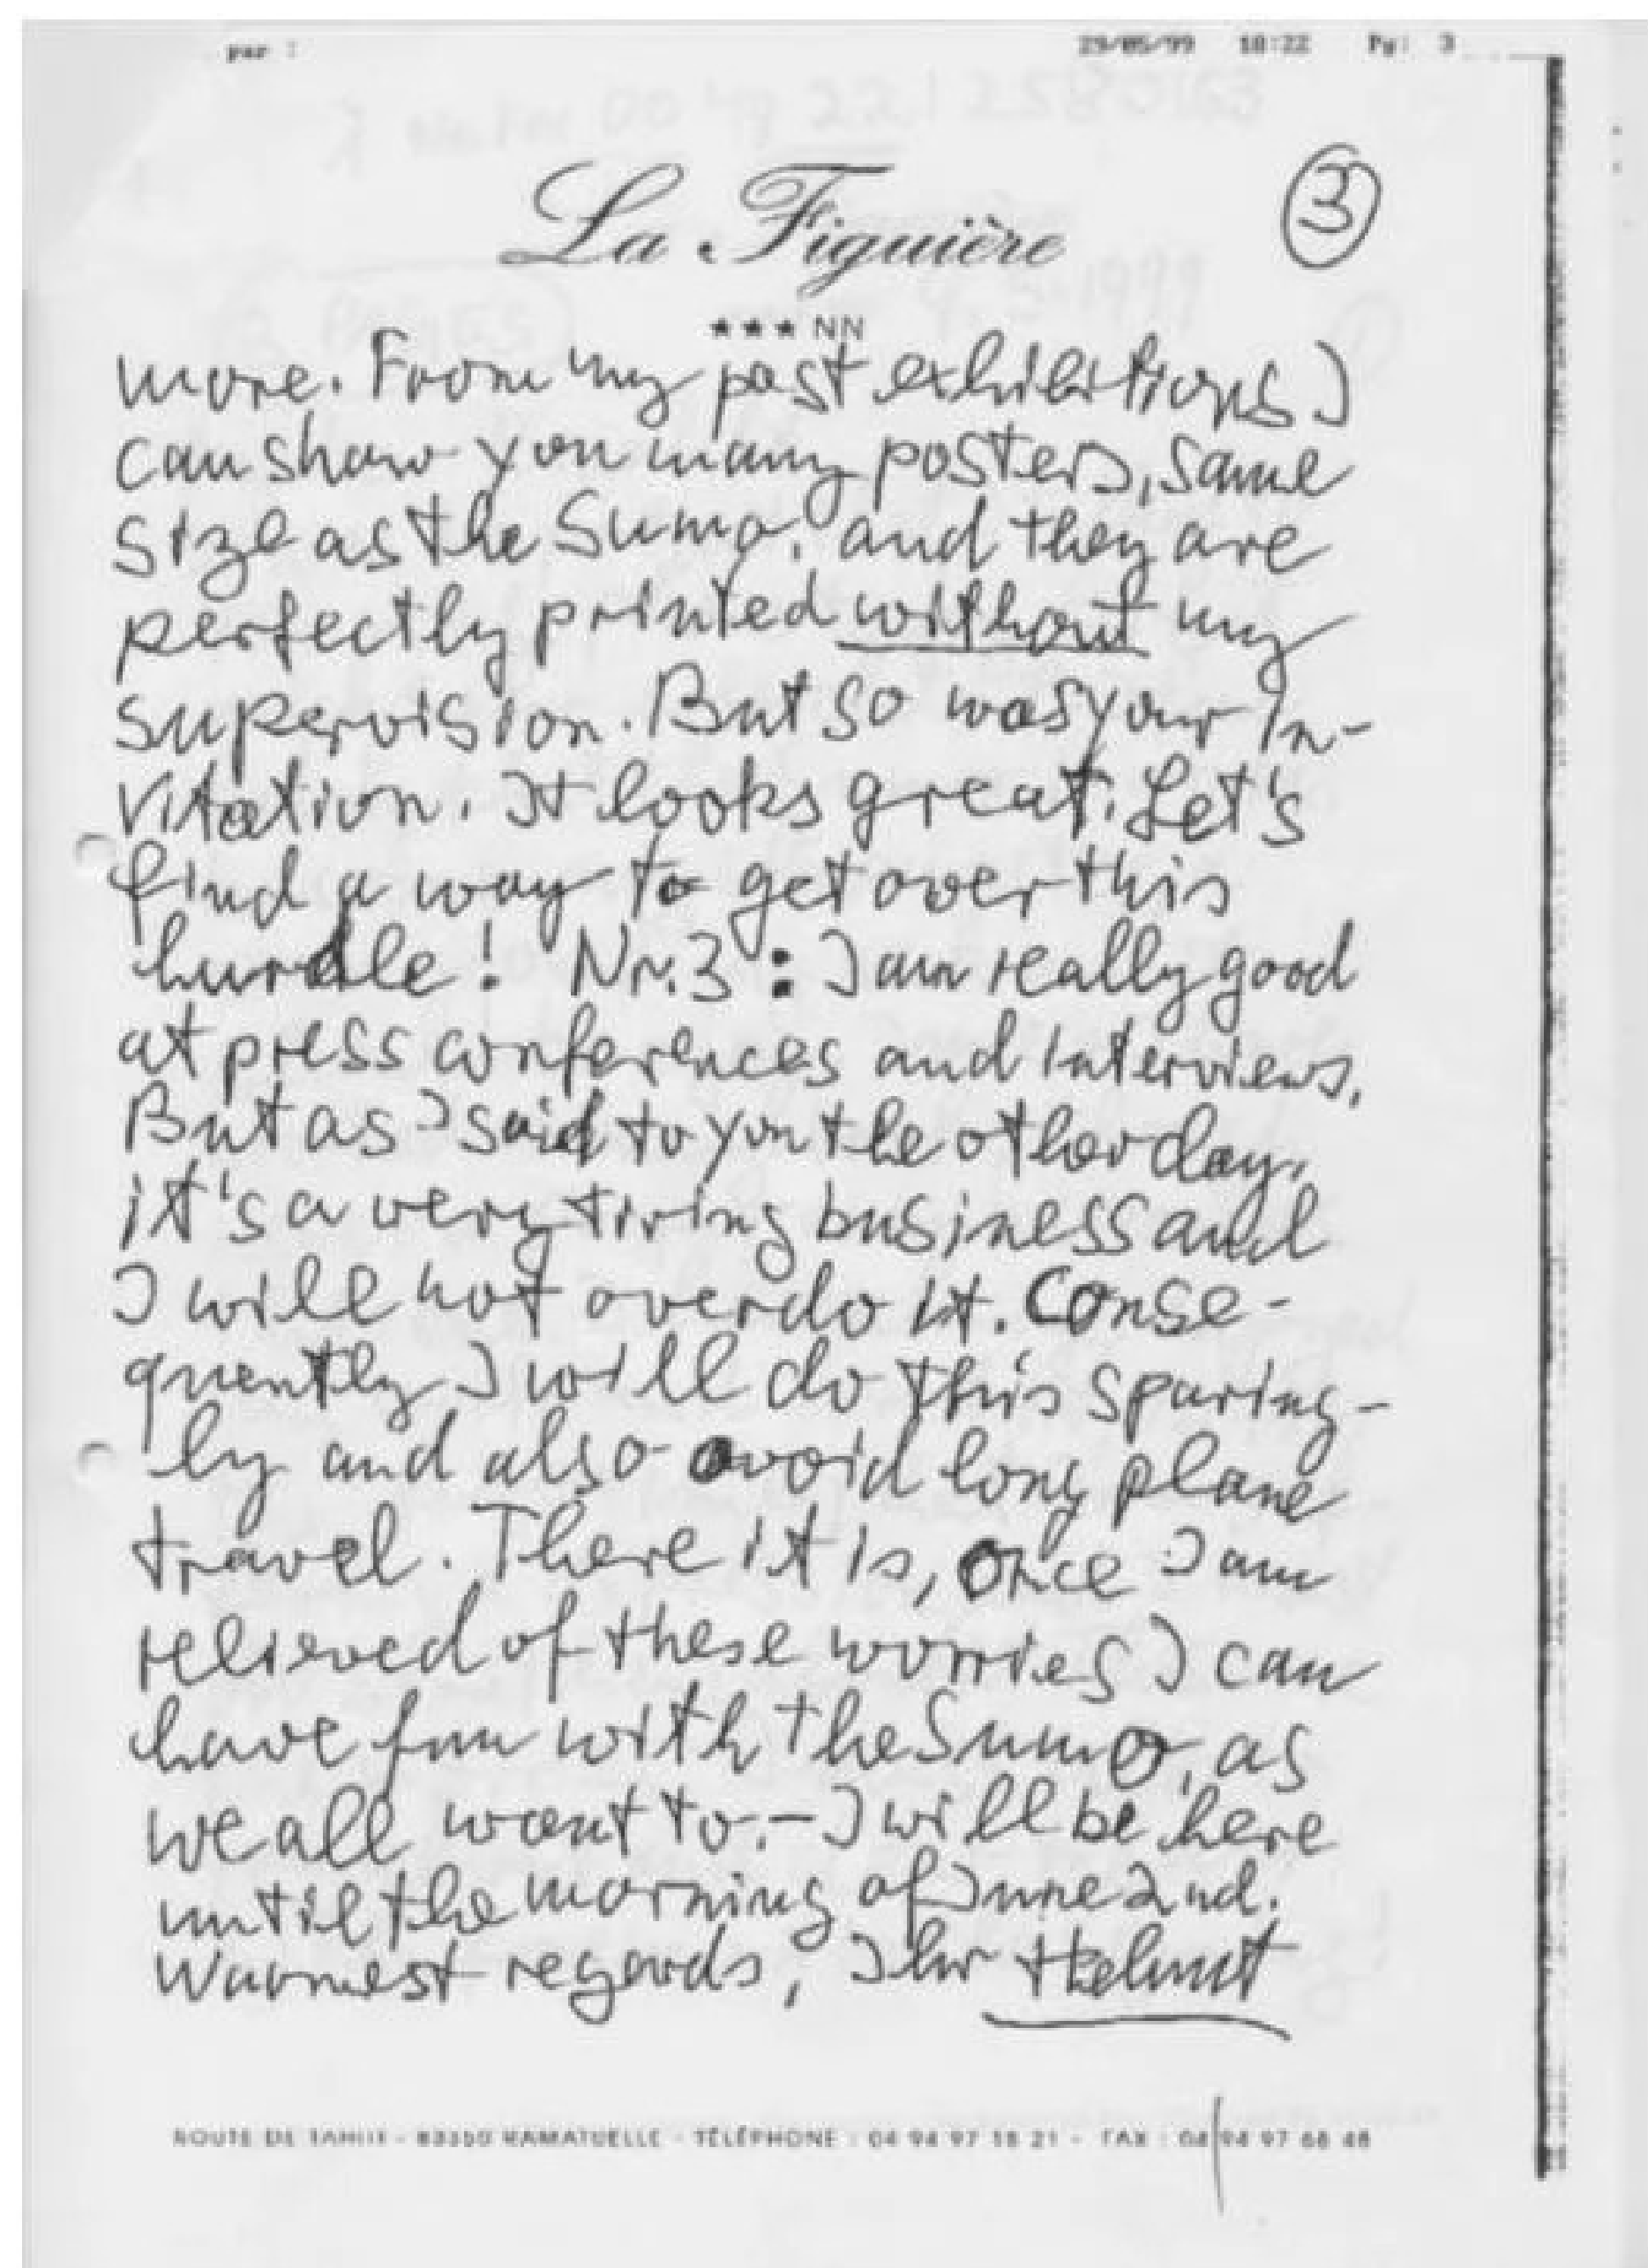 par :    29/05/99    18:22    Pg:  3
La Figuière
3
★★★ NN
more. From my past exhibitions I
can show you many posters, same
size as the Sumo, and they are
perfectly printed without my
supervision. But so was your in-
vitation. It looks great. Let's
find a way to get over this
hurdle! Nr. 3 : I am really good
at press conferences and interviews.
But as I said to you the other day,
it's a very tiring business and
I will not overdo it. Conse-
quently I will do this sparing-
ly and also avoid long plane
travel. There it is, once I am
relieved of these worries I can
have fun with the Sumo, as
we all want to. – I will be here
until the morning of June 2nd.
Warmest regards, Ihr Helmut
ROUTE DE TAHITI - 83350 RAMATUELLE - TÉLÉPHONE : 04 94 97 18 21 - FAX : 04 94 97 68 48